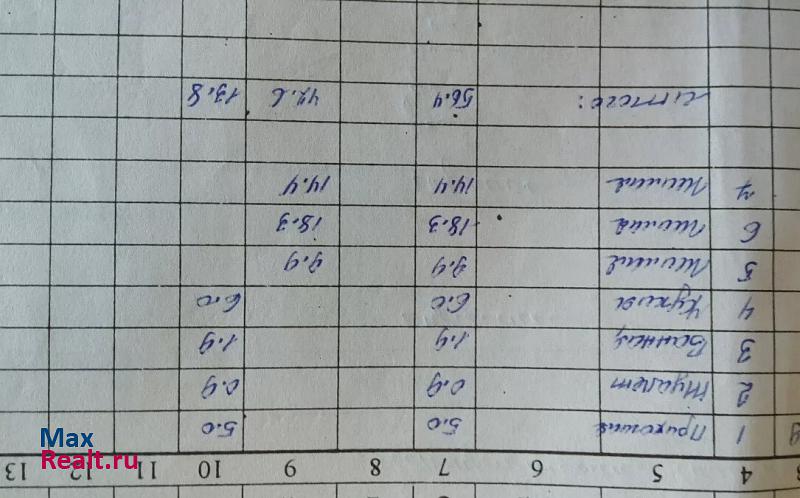 3 4 5 6 7 8 9 10 11 12 13
1 Прихожая 5.0 5.0
2 Туалет 0.9 0.9
3 Ванная 1.9 1.9
4 Кухня 6.0 6.0
5 Жилая 9.9 9.9
6 Жилая 18.3 18.3
7 Жилая 14.4 14.4
Итого: 56.4 42.6 13.8
Max
Realt.ru